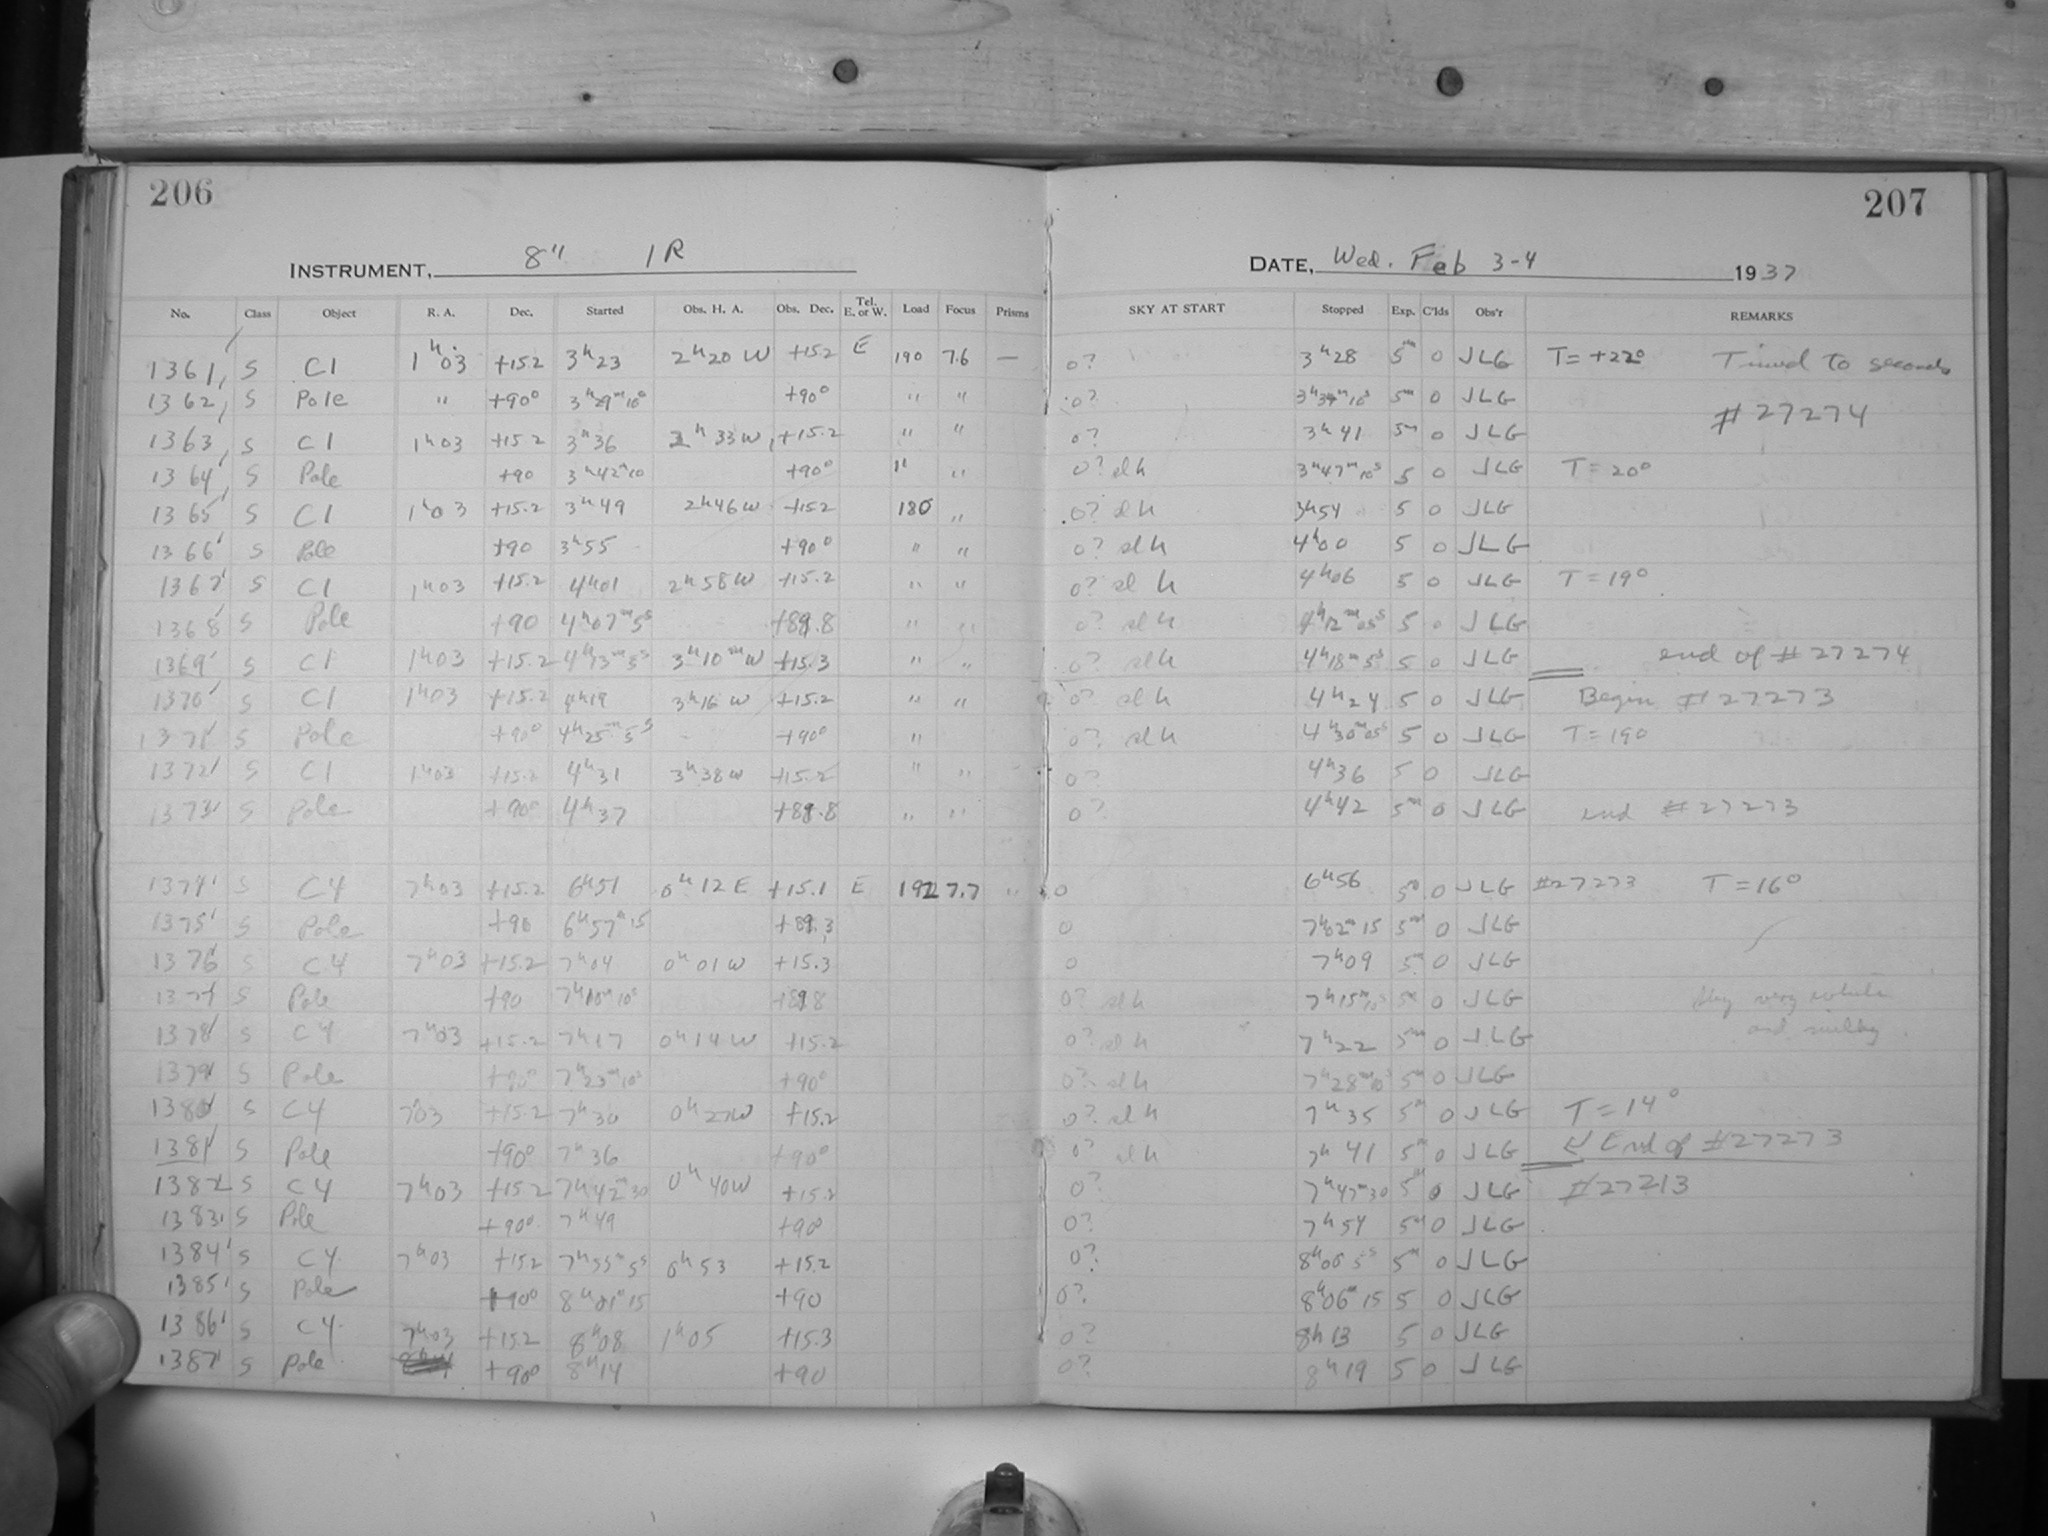 206
207
INSTRUMENT, 8" 1R
DATE, Wed. Feb 3-4 1937
No. Class Object R. A. Dec. Started Obs. H. A. Obs. Dec. Tel. E. or W. Load Focus Prisms SKY AT START Stopped Exp. C'lds Obs'r REMARKS
1361 S C1 1h03 +15.2 3h23 2h20 W +15.2 E 190 7.6 — 0? 3h28 5m 0 JLG T=+22° Timed to seconds
1362 S Pole " +90° 3h29m10s +90° " " 0? 5m 0 JLG # 27274
1363 S C1 1h03 +15.2 3h36 2h33W +15.2 " " 0? 3h41 5m 0 JLG
1364 S Pole +90 3h42m10 +90° " " 0? slh 3h47m10s 5 0 JLG T=20°
1365 S C1 1h03 +15.2 3h49 2h46W +15.2 180 " 0? slh 3h54 5 0 JLG
1366 S Pole +90 3h55 +90° " " 0? slh 4h00 5 0 JLG
1367 S C1 1h03 +15.2 4h01 2h58W +15.2 " " 0? sl h 4h06 5 0 JLG T=19°
1368 S Pole +90 4h07m5s +89.8 " " 0? slh 4h12m05s 5 0 JLG
1369 S C1 1h03 +15.2 4h13m5s 3h10mW +15.3 " " 0? slh 4h18m5s 5 0 JLG end of # 27274
1370 S C1 1h03 +15.2 4h19 3h16W +15.2 " " 0? slh 4h24 5 0 JLG Begin # 27273
1371 S Pole +90° 4h25m5s +90° " 0? slh 4h30m05s 5 0 JLG T=19°
1372 S C1 1h03 +15.2 4h31 3h38W +15.2 " " 0? 4h36 5 0 JLG
1373 S Pole +90° 4h37 +89.8 " " 0? 4h42 5m 0 JLG end # 27273
1374 S C4 7h03 +15.2 6h51 0h12E +15.1 E 192 7.7 " 0 6h56 5m 0 JLG #27273 T=16°
1375 S Pole +90 6h57m15 +89.3 0 7h02m15 5m 0 JLG
1376 S C4 7h03 +15.2 7h04 0h01W +15.3 0 7h09 5m 0 JLG
1377 S Pole +90 7h10m10s +89.8 0? slh 7h15m10s 5m 0 JLG Sky very white
1378 S C4 7h03 +15.2 7h17 0h14W +15.2 0? slh 7h22 5m 0 JLG and milky
1379 S Pole +90° 7h23m10s +90° 0? slh 7h28m10s 5m 0 JLG
1380 S C4 7h03 +15.2 7h30 0h27W +15.2 0? slh 7h35 5m 0 JLG T=14°
1381 S Pole +90° 7h36 +90° 0? slh 7h41 5m 0 JLG End of #27273
1382 S C4 7h03 +15.2 7h42m30 0h40W +15.2 0? 7h47m30 5m 0 JLG #27213
1383 S Pole +90° 7h49 +90 0? 7h54 5m 0 JLG
1384 S C4 7h03 +15.2 7h55m5s 0h53 +15.2 0? 8h00 5s 5m 0 JLG
1385 S Pole +90° 8h01m15 +90 0? 8h06m15 5 0 JLG
1386 S C4 7h03 +15.2 8h08 1h05 +15.3 0? 8h13 5 0 JLG
1387 S Pole +90° 8h14 +90 0? 8h19 5 0 JLG